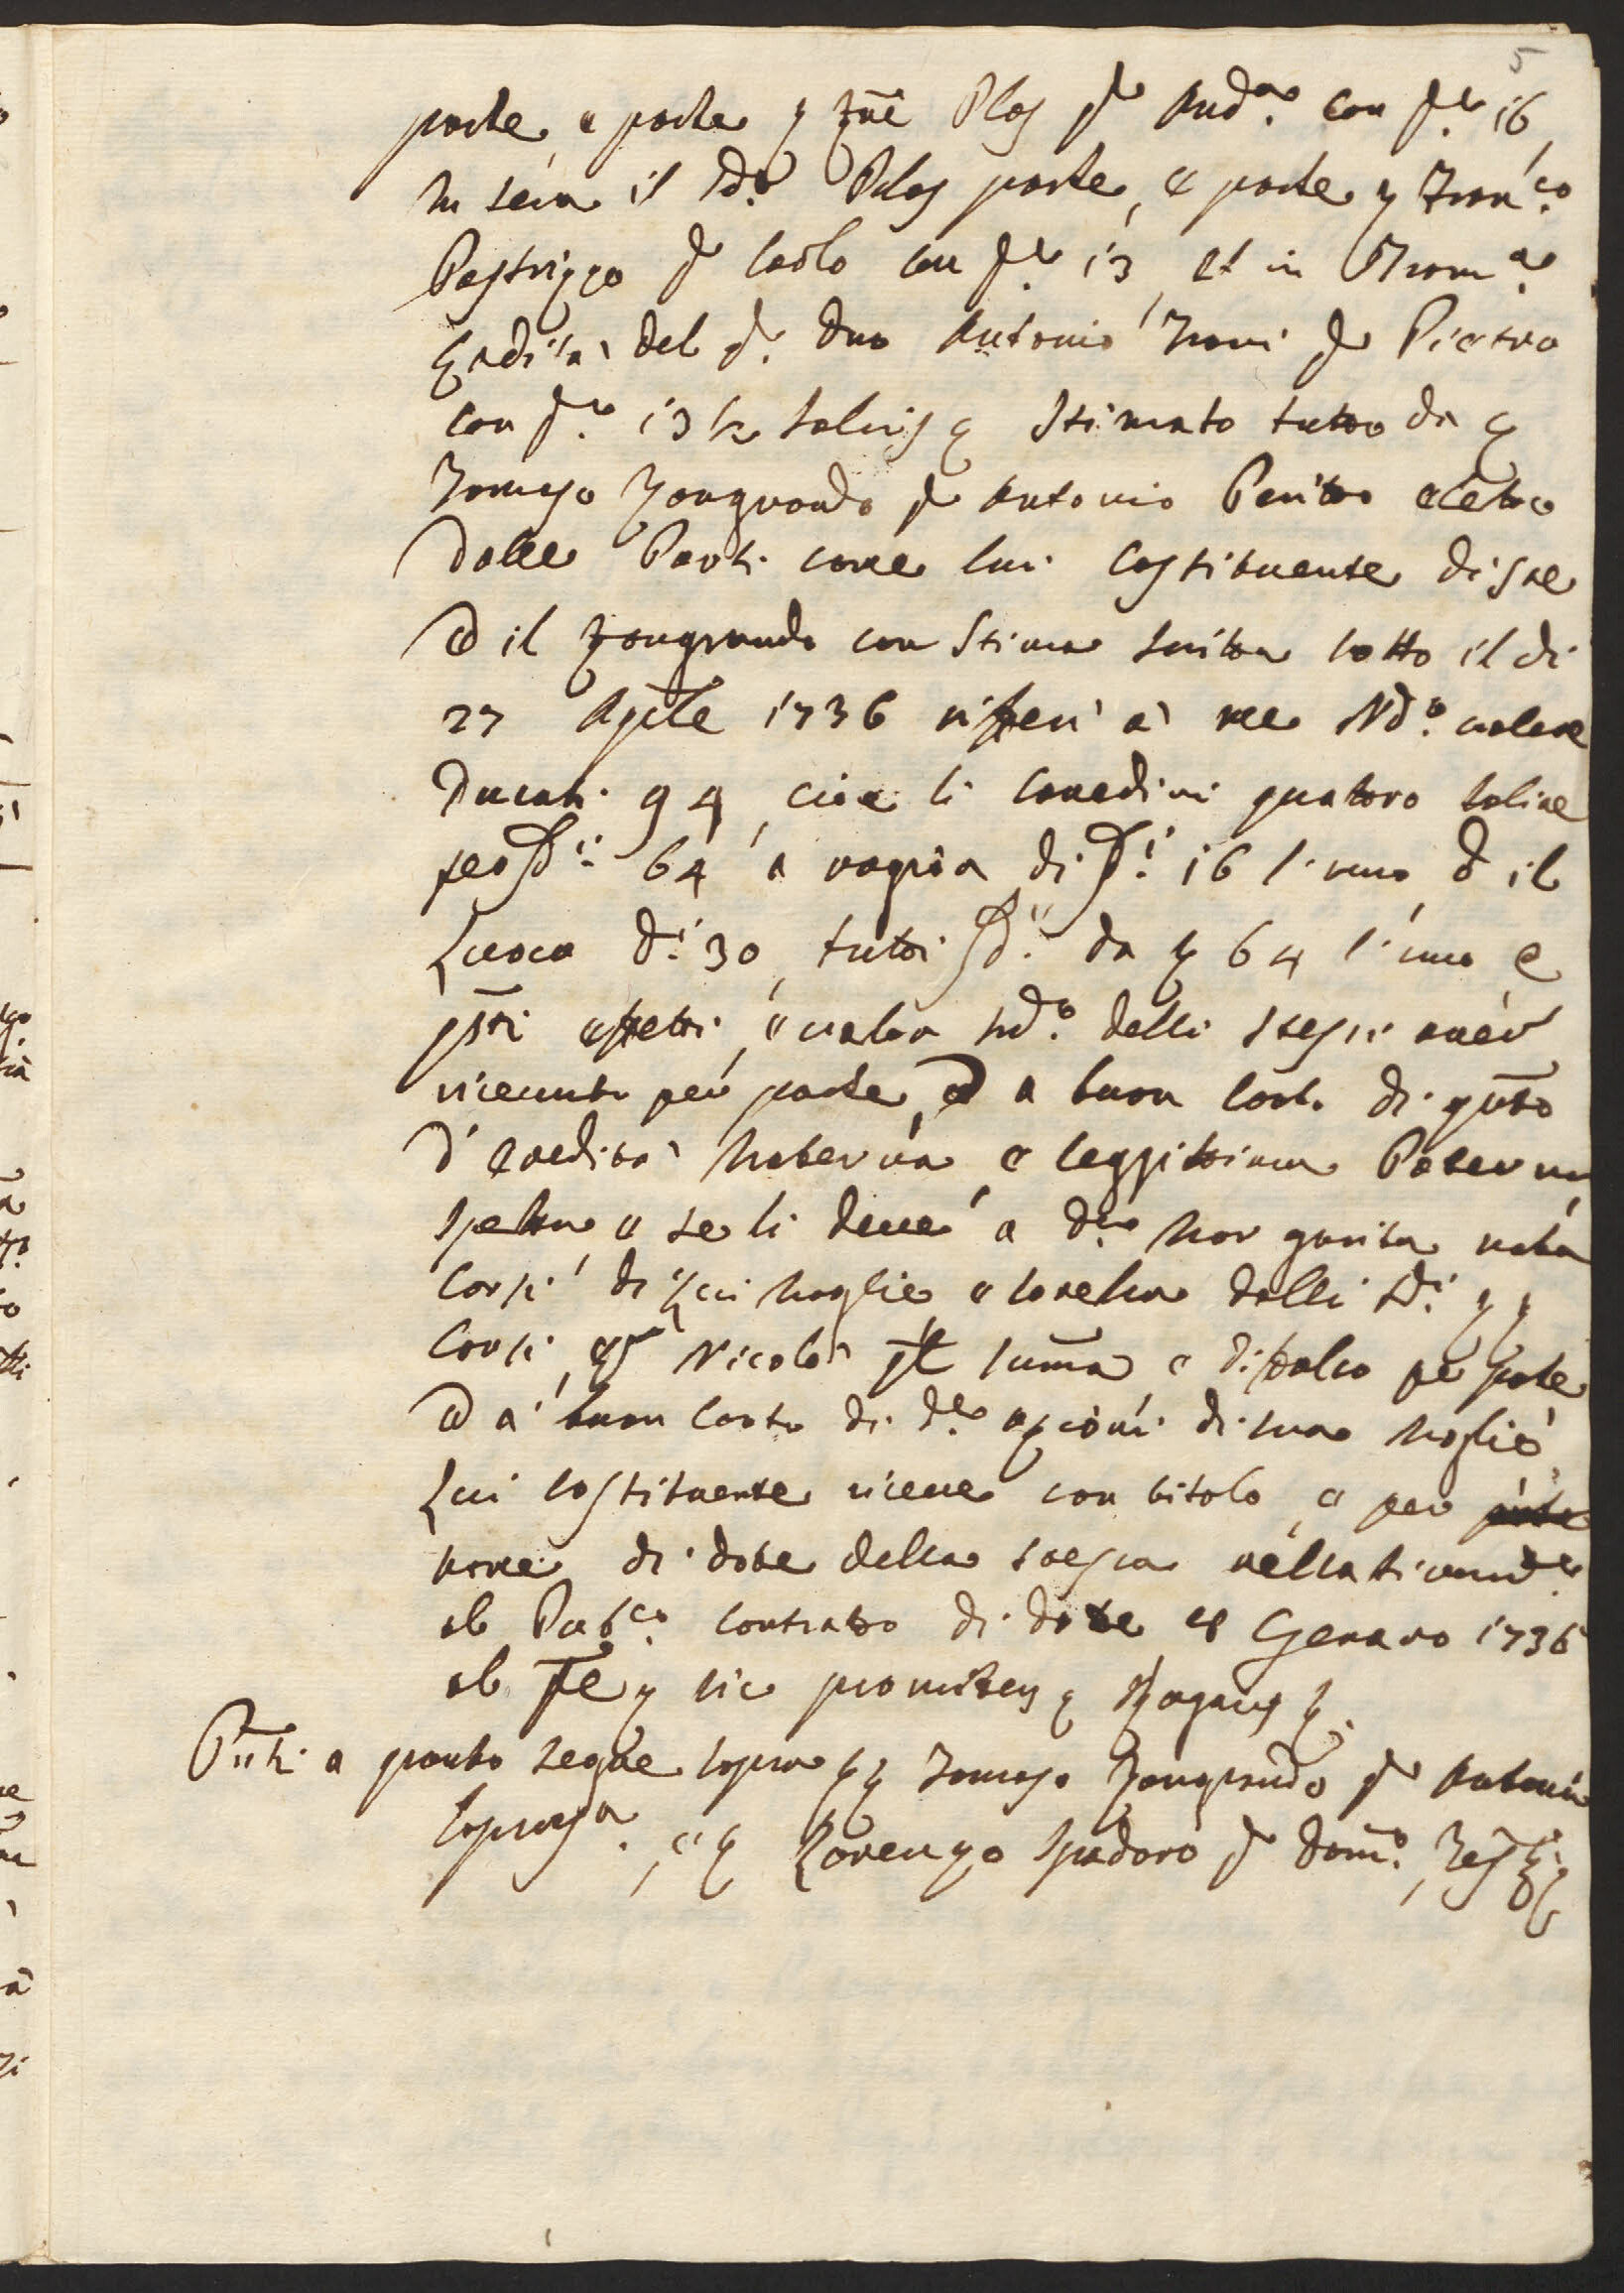 5
parte, e parte q Zuē Plos qm And.a con p.e 16,
In sera il sd.o Plos parte, e parte q Fran.co
Pastrizzo qm Carlo con p.e 13, et in Trom.a
Eredità del q. Dno Antonio Troni qm Pietro
con p.e 13 1/2 salvis q Stimato tutto da q
Tomaso Zongrando qm Antonio Perito eletto
dalle Parti come lui Costituente disse
ed il Zongrando con Stima scritta sotto il dì
27 Aprīle 1736 rifferì à me Nd.o valere
Ducati 94, cioè li Caredini quatoro
per D.i 64 a ragion di D.i 16 l'uno, ed il
Luoco D.i 30, tutti D.i da q 64 l'uno, e
q̄sti effetti, e valor sd.o delli stessi aver
ricevuto per parte, ed a buon Conto di q̄nto
d'eredità Materna, e leggittima Paterna
spetta e se li deve a d.a Margarita nata
Corsi di Lui Moglie e sorella delli sd.i qq
Corsi, Nicolò sum̄a e diffalco per parte
ed a' buon Conto di d.e azioni di sua Moglie,
Lui Costituente riceve con titolo, e per
nome di dote della stessa
ab Pub.co Contratto di dote Genaro 1736
ab sic promittens q
P̄nti a quanto segue sopra qq Tomaso Zongrando qm Antonio
sopras.a, e q Lorenzo Spadoro qm Dom.o, Tes